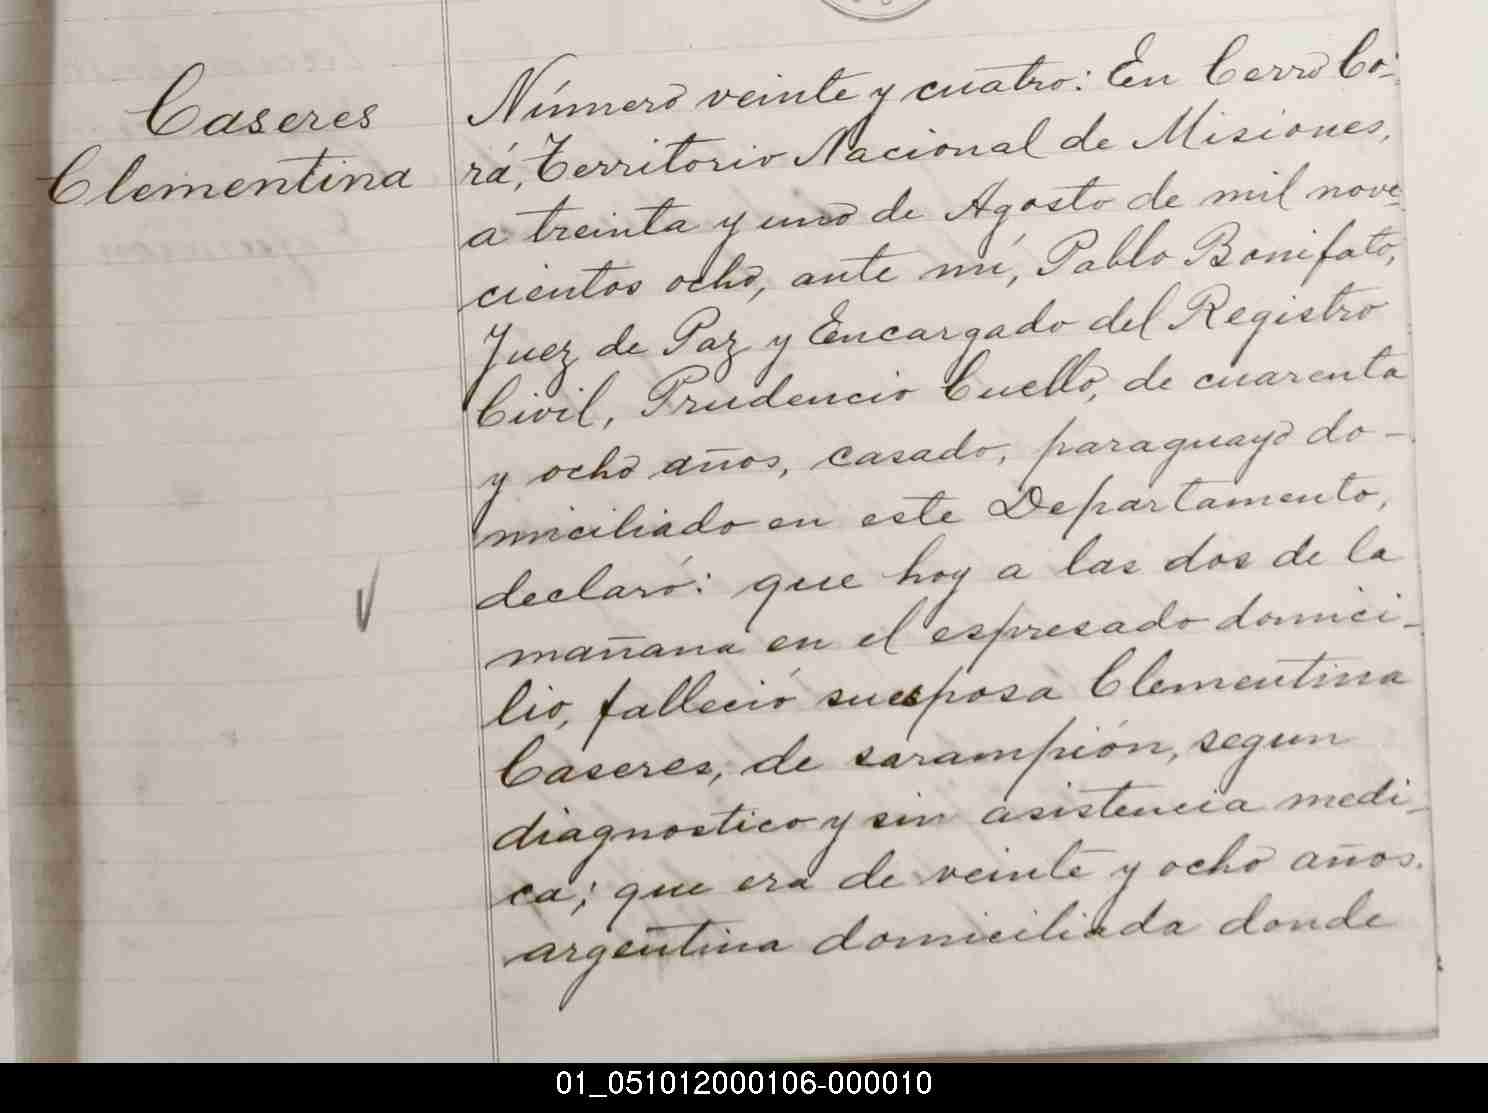 Caseres
Clementina
Número veinte y cuatro: En Cerro Co-
rá, Territorio Nacional de Misiones,
a treinta y uno de Agosto de mil nove-
cientos ocho, ante mí, Pablo Bonifato,
Juez de Paz y Encargado del Registro
Civil, Prudencio Cuello, de cuarenta
y ocho años, casado, paraguayo do-
miciliado en este Departamento,
declaró: que hoy a las dos de la
mañana en el espresado domici-
lio, falleció su esposa Clementina
Caseres, de sarampión, segun
diagnostico y sin asistencia medi-
ca; que era de veinte y ocho años.
argentina domiciliada donde
01_051012000106-000010